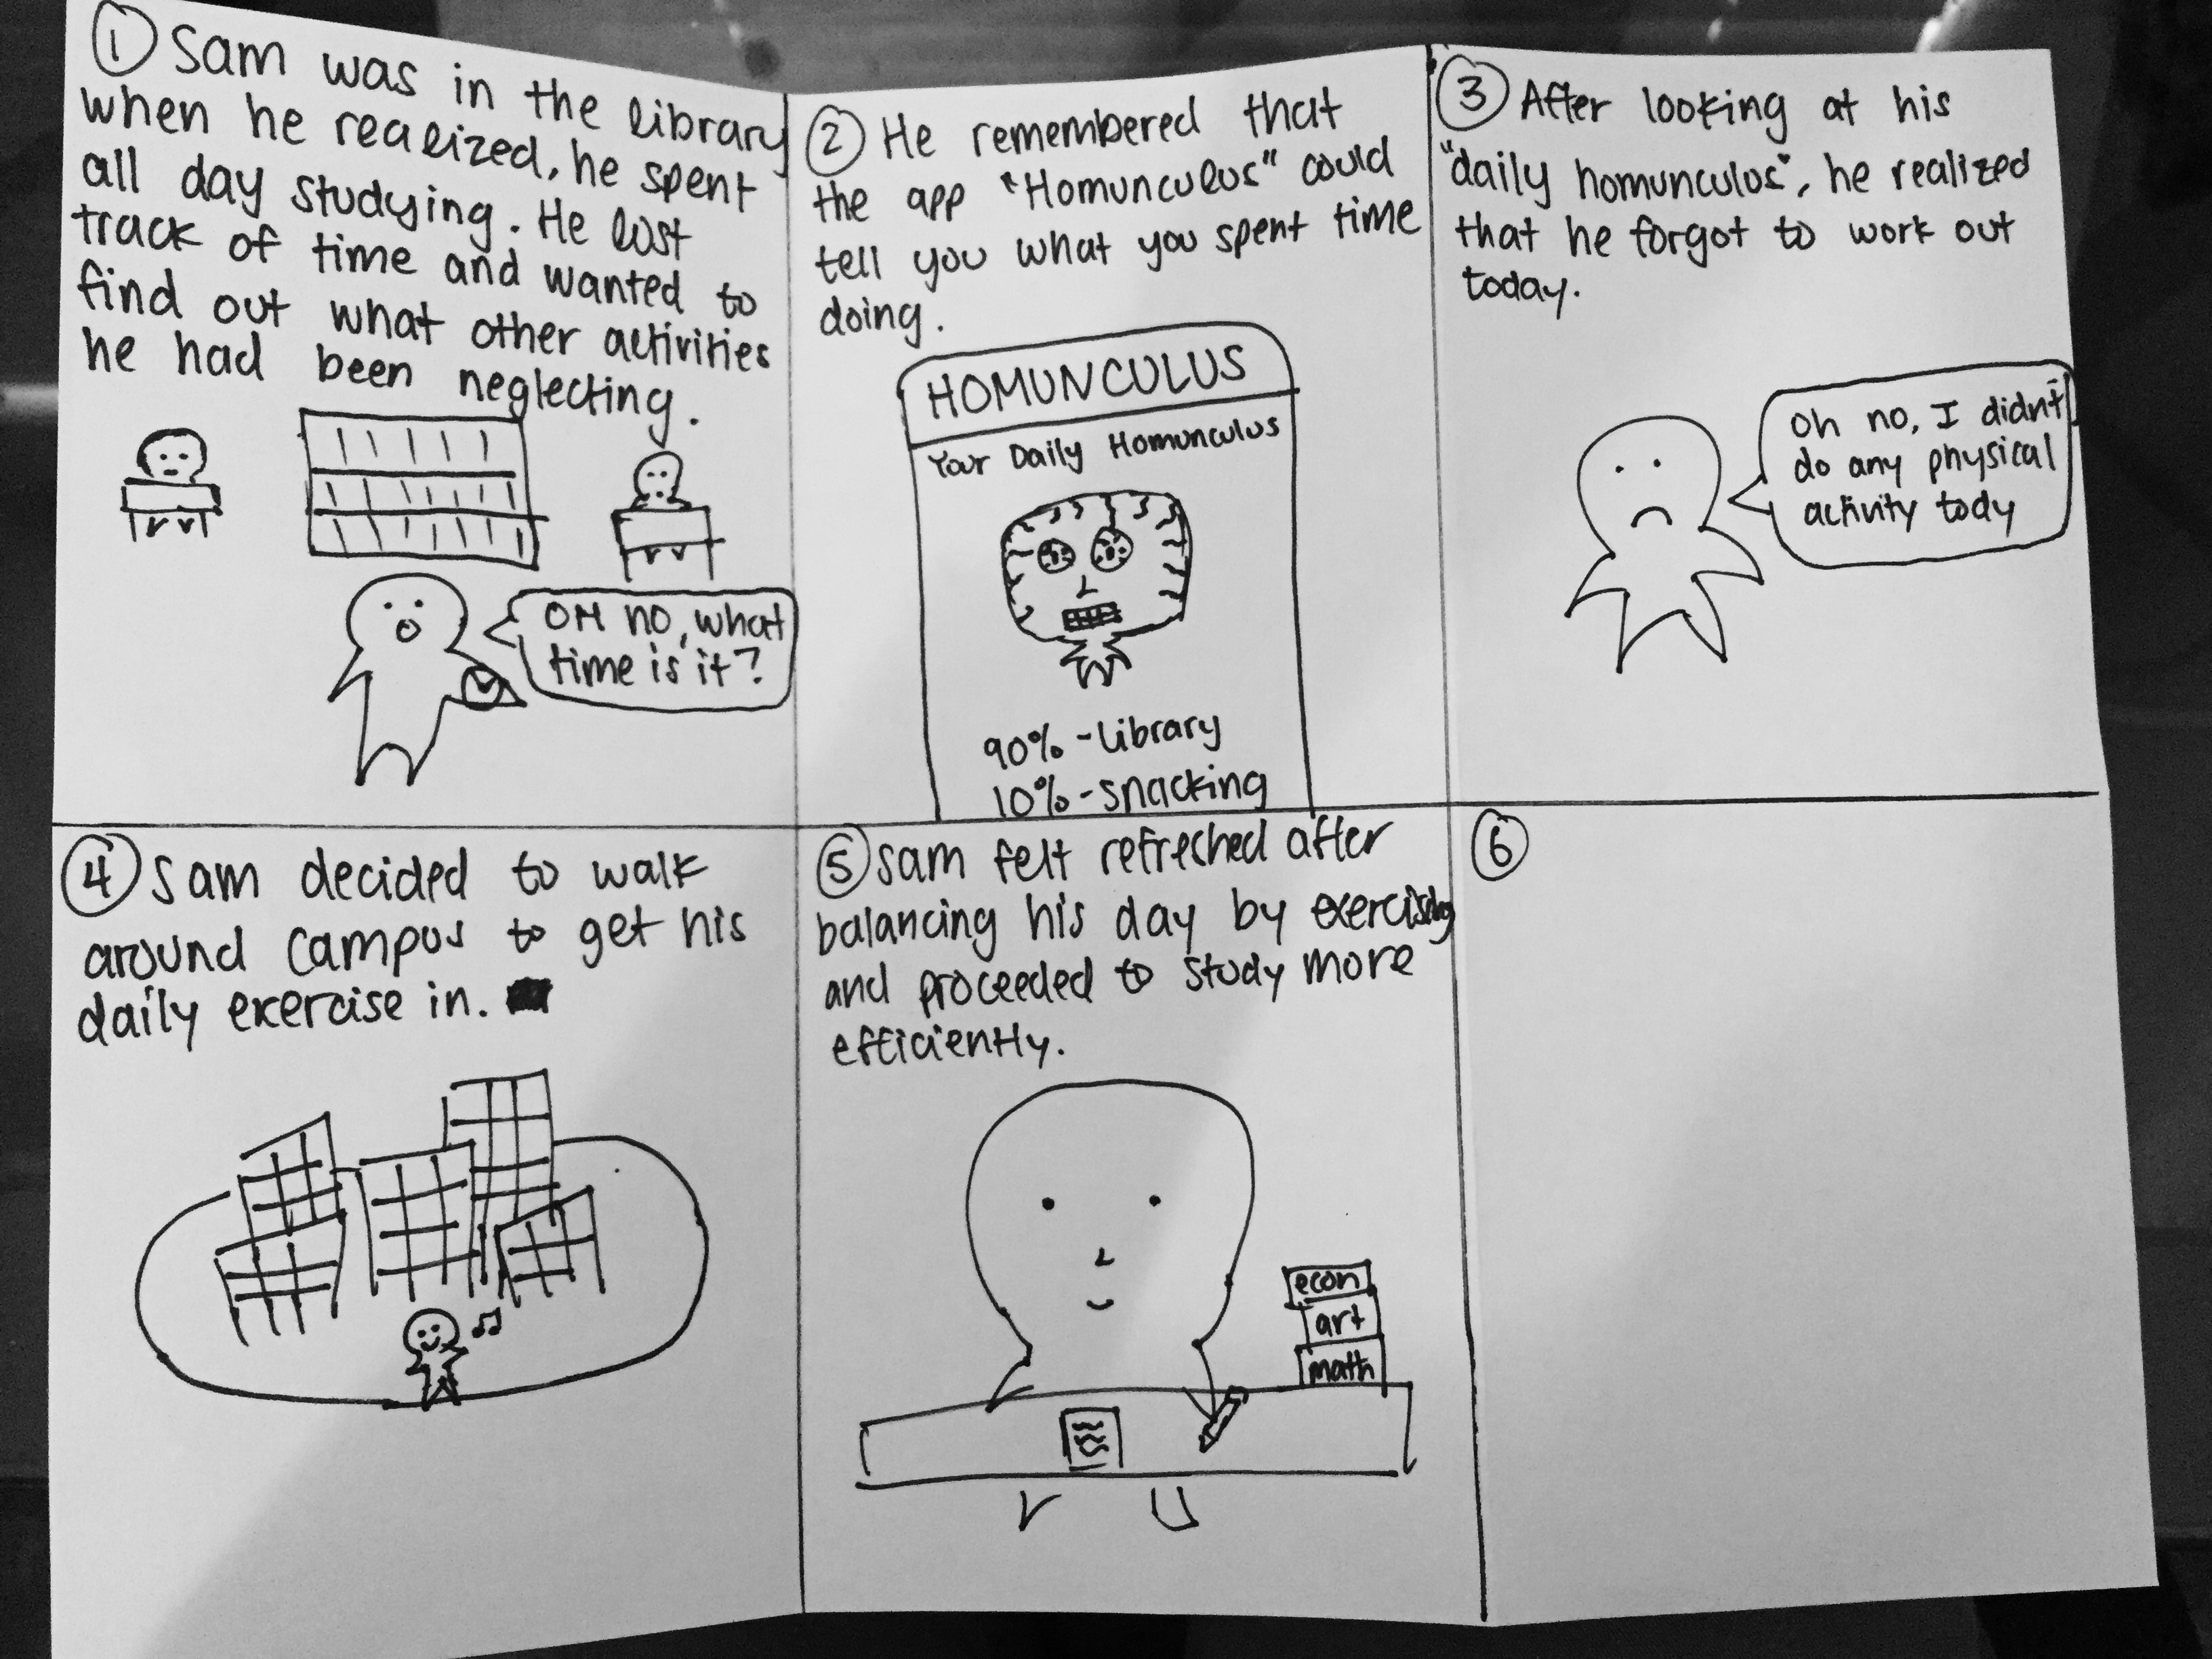 ① Sam was in the library
when he realized, he spent
all day studying. He lost
track of time and wanted to
find out what other activities
he had been neglecting.
OH no, what
time is it?
② He remembered that
the app "Homunculus" could
tell you what you spent time
doing.
HOMUNCULUS
Your Daily Homunculus
90% - Library
10% - snacking
③ After looking at his
"daily homunculus", he realized
that he forgot to work out
today.
Oh no, I didn't
do any physical
activity tody
④ Sam decided to walk
around campus to get his
daily exercise in.
⑤ Sam felt refreched after
balancing his day by exercising
and proceeded to study more
efficiently.
econ
art
math
⑥